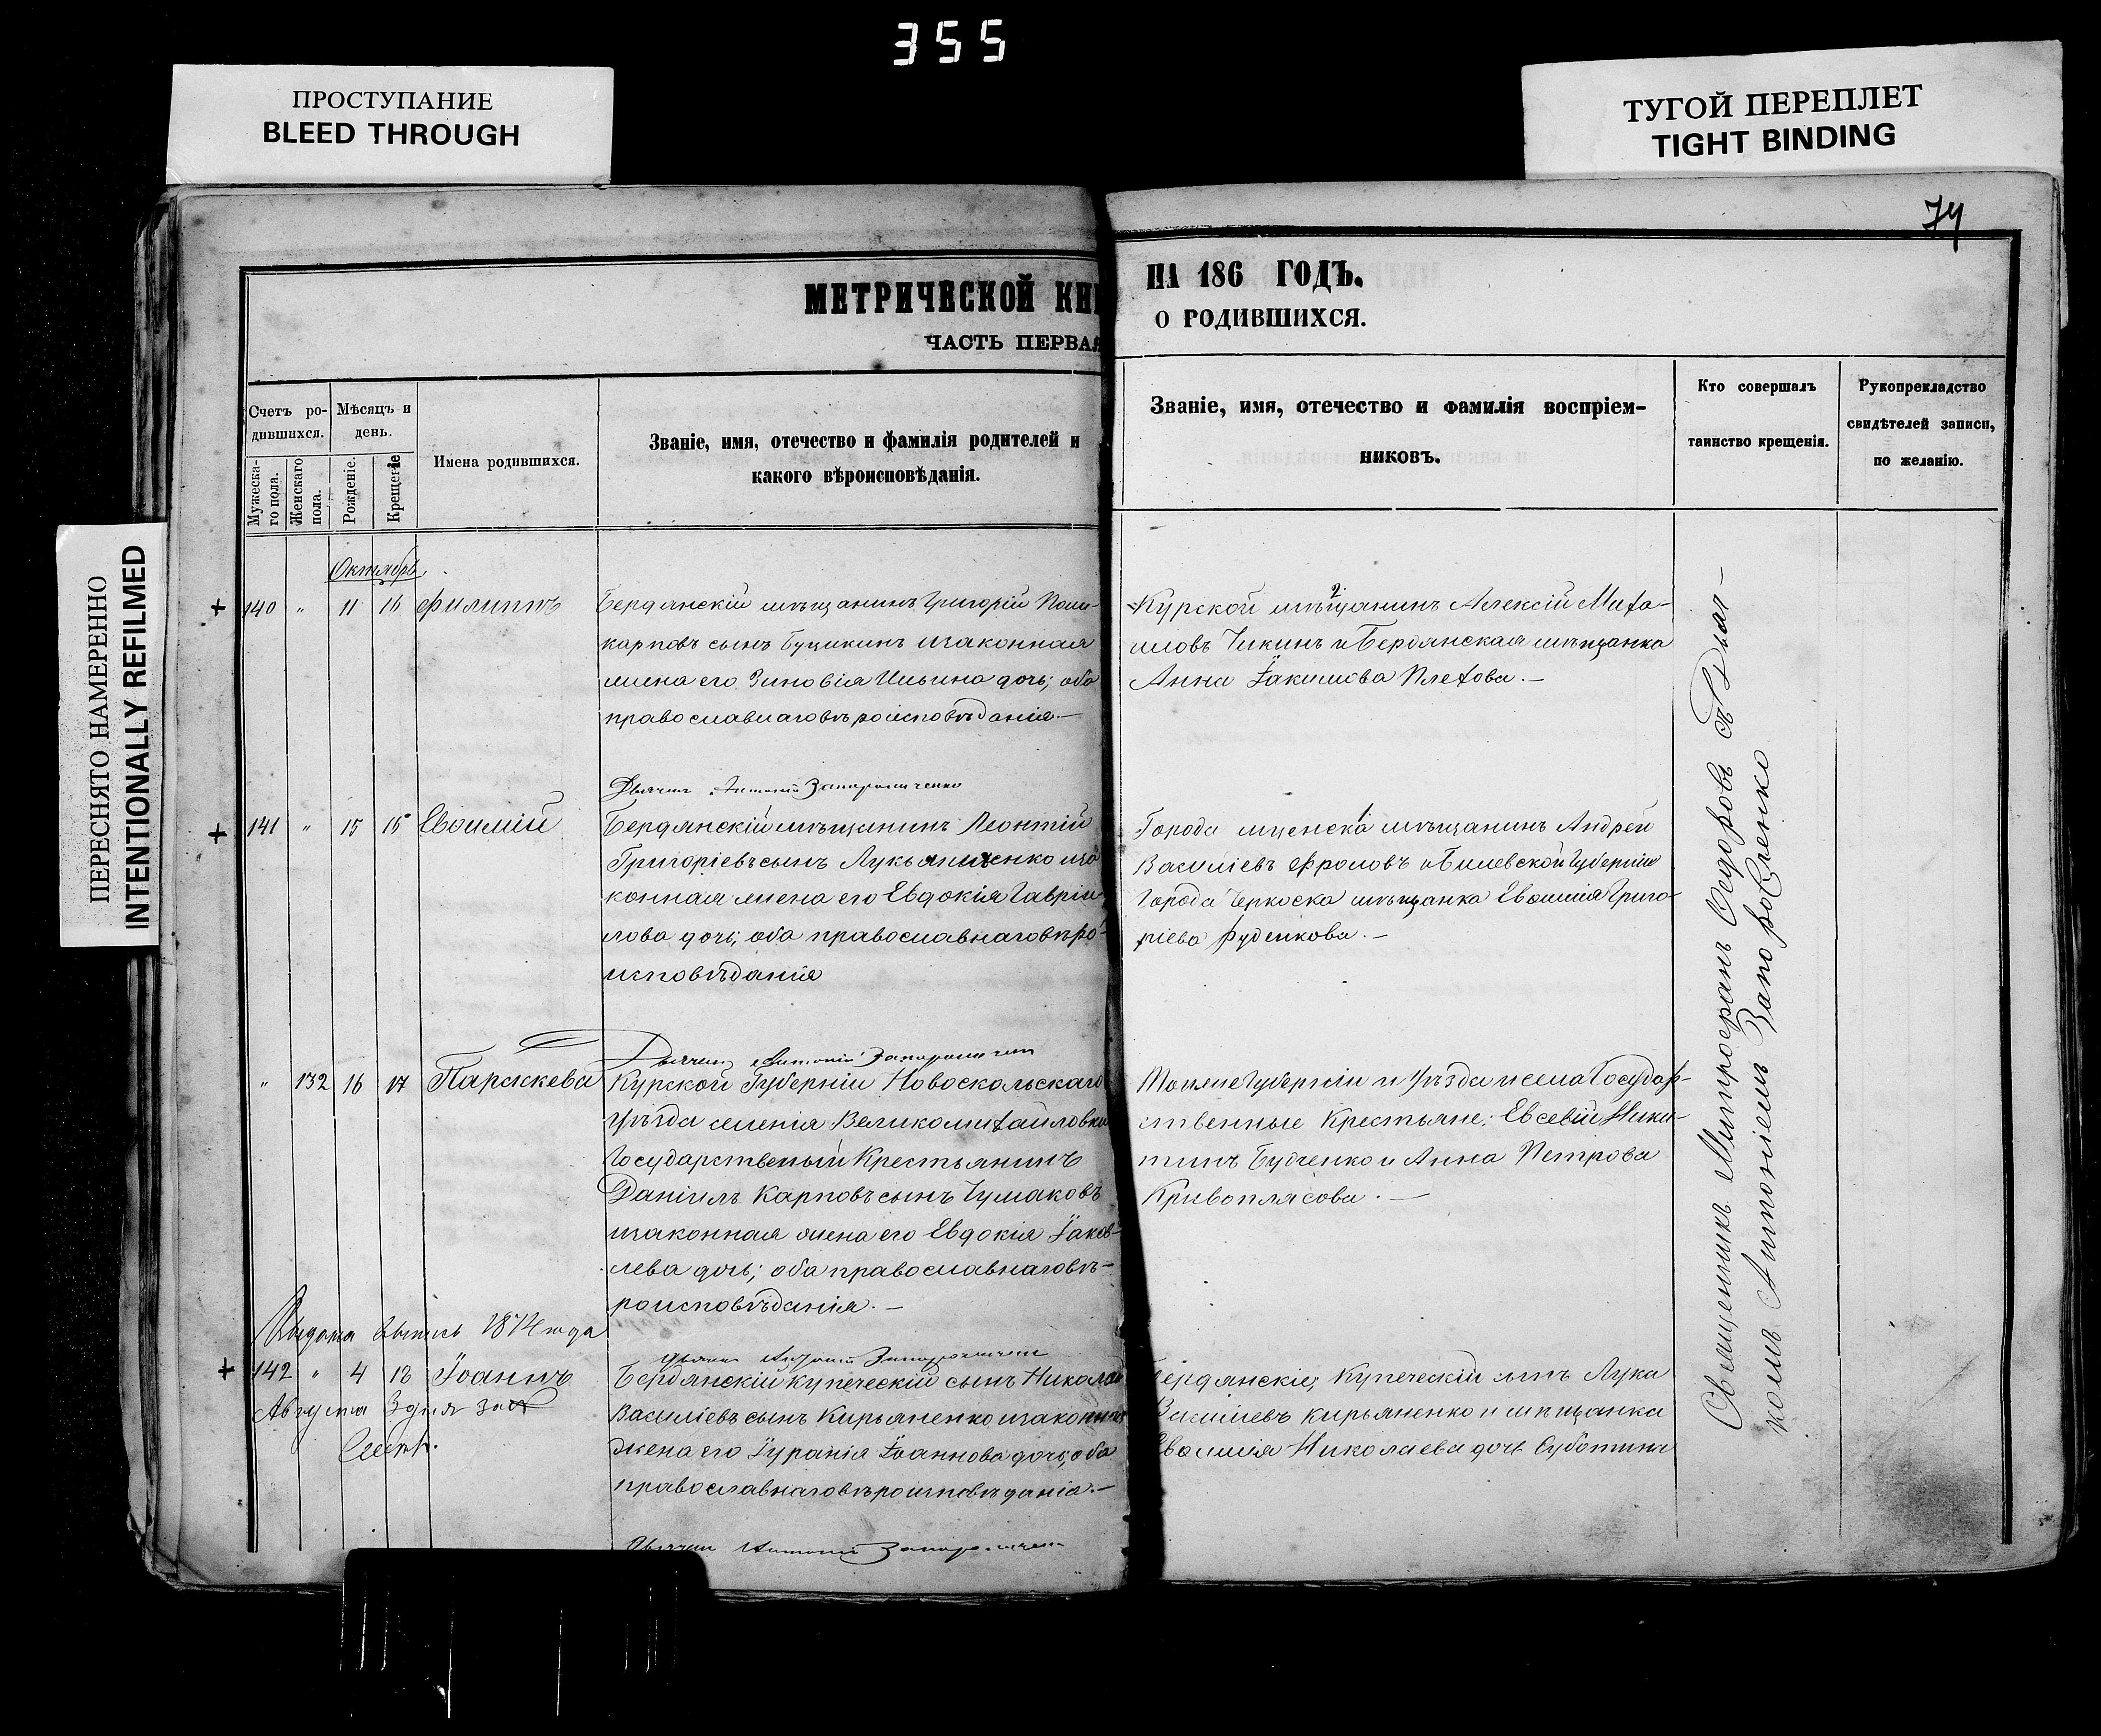 355
ПРОСТУПАНИЕ
BLEED THROUGH
ТУГОЙ ПЕРЕПЛЕТ
TIGHT BINDING
ПЕРЕСНЯТО НАМЕРЕННО
INTENTIONALLY REFILMED
74
МЕТРИЧЕСКОЙ КНИ
ЧАСТЬ ПЕРВАЯ
НА 186 ГОДЪ.
О РОДИВШИХСЯ.
Счетъ ро-
дившихся.
Мужеска-
го пола.
Женскаго
пола.
Мѣсяцъ и
день.
Рожденіе.
Крещеніе
Имена родившихся.
Званіе, имя, отечество и фамилія родителей и
какого вѣроисповѣданія.
Званіе, имя, отечество и фамилія воспріем-
никовъ.
Кто совершалъ
таинство крещенія.
Рукоприкладство
свидѣтелей записи,
по желанію.
Октябрь
140 " 11 16 Филиппъ
Бердянскій мѣщанинъ Григорій Поли-
карповъ сынъ изаконная
жена его Зиновія Ильина дочь; оба
православнаго вѣроисповѣданія.—
Курской мѣщанинъ Алексій Миха-
иловъ Чикинъ и Бердянская мѣщанка
Анна Іакимова Плехова.—
Дьячекъ Антоній Запорожченко
141 " 15 15 Евѳимій
Бердянскій мѣщанинъ Леонтій
Григоріевъ сынъ Лукьянченко иза
конная жена его Евдокія Гаврiи
лова дочь; оба православнаго вѣро-
исповѣданія
Города мценска мѣщанинъ Андрей
Василіевъ Фроловъ и Губерніи
Города Черкаска мѣщанка Евѳимія Григо-
ріева Руденкова.—
Дьячекъ Антоній Запорожченко
" 132 16 17 Параскева
Курской Губерніи Новоскольскаго
Уѣзда селенія Великомихайловки
Государственый Крестьянинъ
Даніилъ Карповъ сынъ Чумаковъ
изаконная жена его Евдокія Іаков-
лева дочь; оба православнаго вѣ-
роисповѣданія.—
Тойже Губерніи и Уѣзда и села Государ-
ственные Крестьяне: Евсевій Ники-
тинъ Бутченко и Анна Петрова
Кривоплясова.—
Выдана выпись 1874 года
Августа 3 дня за №
142 " 4 18 Іоаннъ
Дьячекъ Антоній Запорожченко
Бердянскій купеческій сынъ Николай
Василіевъ сынъ Кирьяненко изаконная
жена его Іуранія Іоаннова дочь; оба
православнаго вѣроисповѣданія.—
Бердянскіе; Купеческій сынъ Лука
Василіевъ Кирьяненко и мѣщанка
Евѳимія Николаева дочь Суботина
Дьячекъ Антоній Запорожченко
Священникъ Митрофанъ Ѳедоровъ съ Дьяч-
комъ Антоніемъ Запорожченко